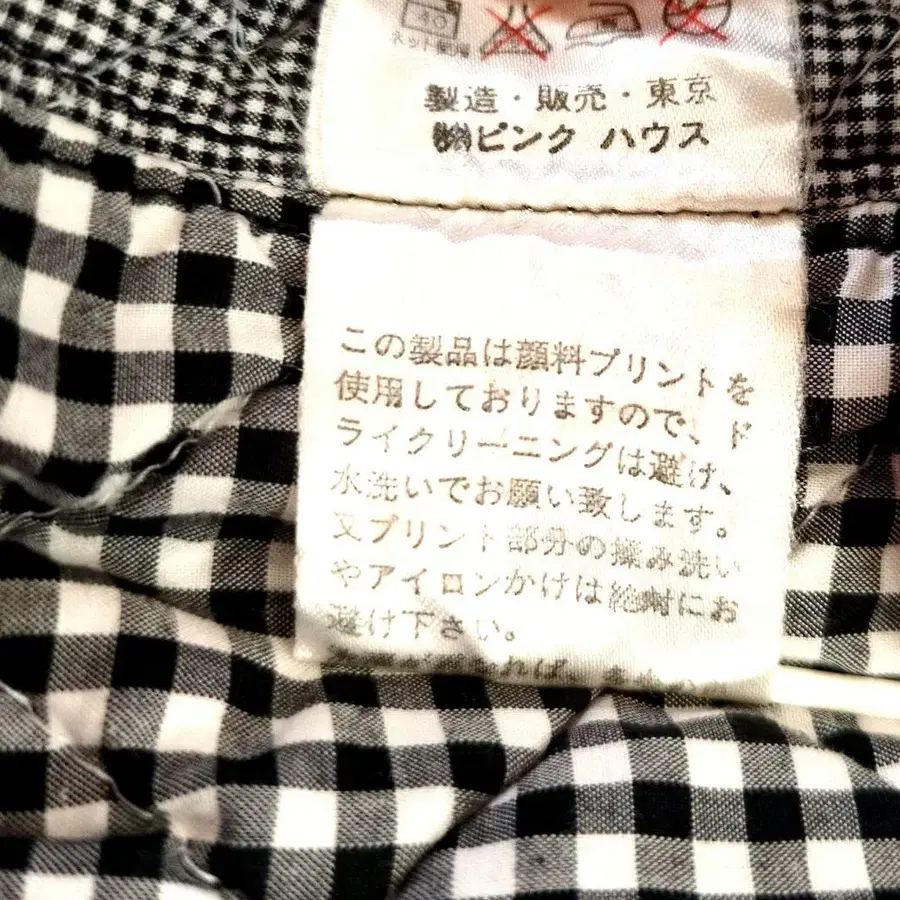 40
ネット使用
製造・販売・東京
㈱ピンク ハウス
この製品は顔料プリントを
使用しておりますので、ド
ライクリーニングは避け、
水洗いでお願い致します。
又プリント部分の揉み洗い
やアイロンかけは絶対にお
避け下さい。